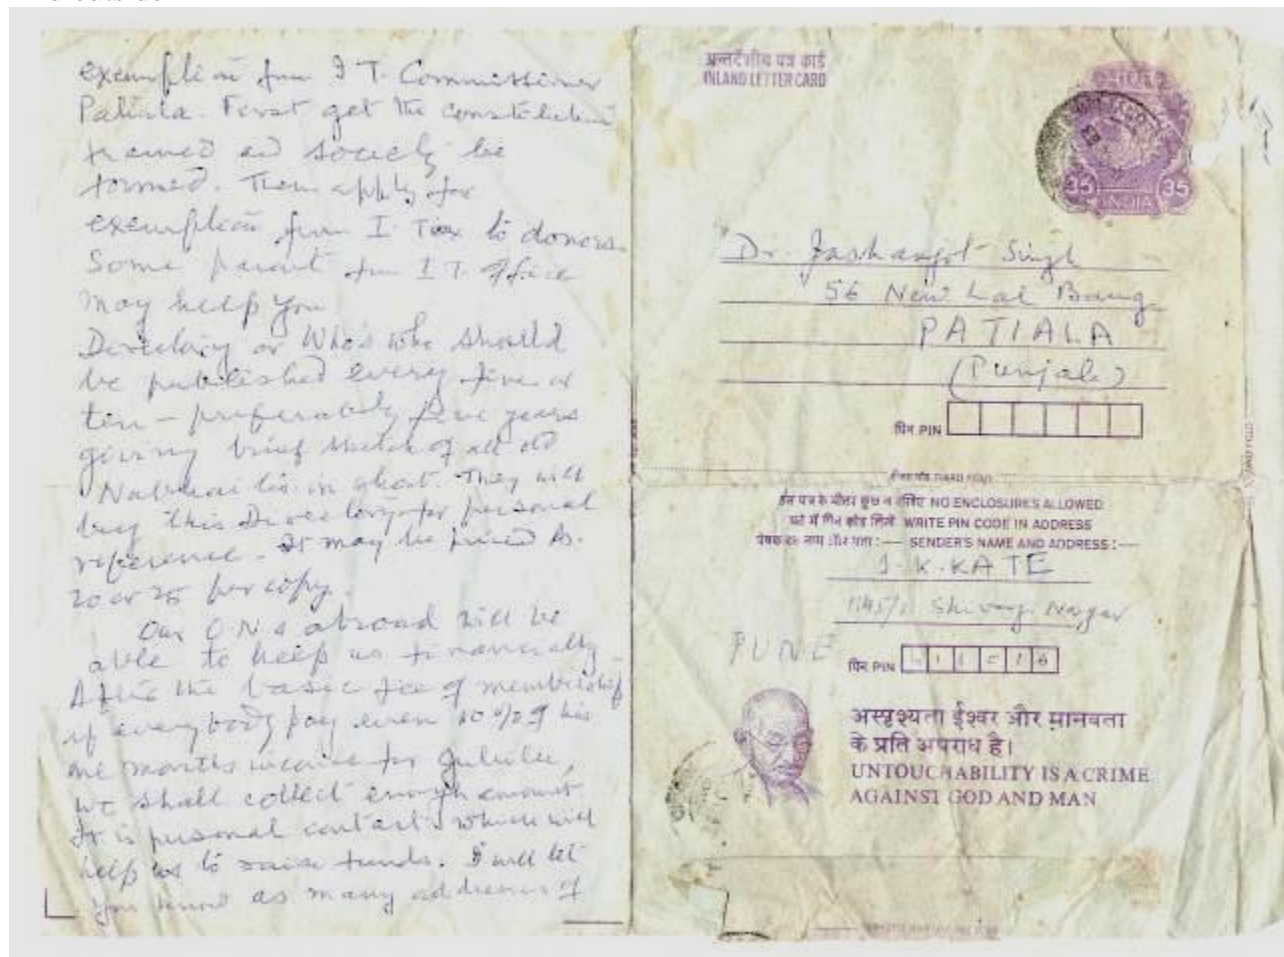 exemption from I T. Commissioner
Patiala. First get the constitution
framed and society be
formed. Then apply for
exemption from I Tax to donors.
Some parent from I T. Office
may help you
Directory or Who's who should
be published every five or
ten - preferably five years
giving brief sketch of all old
They will
buy this Directory for personal
reference - It may be priced Rs.
20 or 25 per copy.
Our O N s abroad will be
able to help us financially -
After the basic fee of membership
if everybody pay even 10 % of his
one months income for Jubilee,
we shall collect enough amount
It is personal contact which will
help us to raise funds. I will let
you know as many addresses of
अन्तर्देशीय पत्र कार्ड
INLAND LETTER CARD
35 35
INDIA
Dr. Jashanjot Singh
56 New Lal Baug
PATIALA
(Punjab)
पिन PIN
NO ENCLOSURES ALLOWED
WRITE PIN CODE IN ADDRESS
SENDER'S NAME AND ADDRESS :—
J. K. KATE
Shivaji Nagar
PUNE
पिन PIN 411016
अस्पृश्यता ईश्वर और मानवता
के प्रति अपराध है।
UNTOUCHABILITY IS A CRIME
AGAINST GOD AND MAN